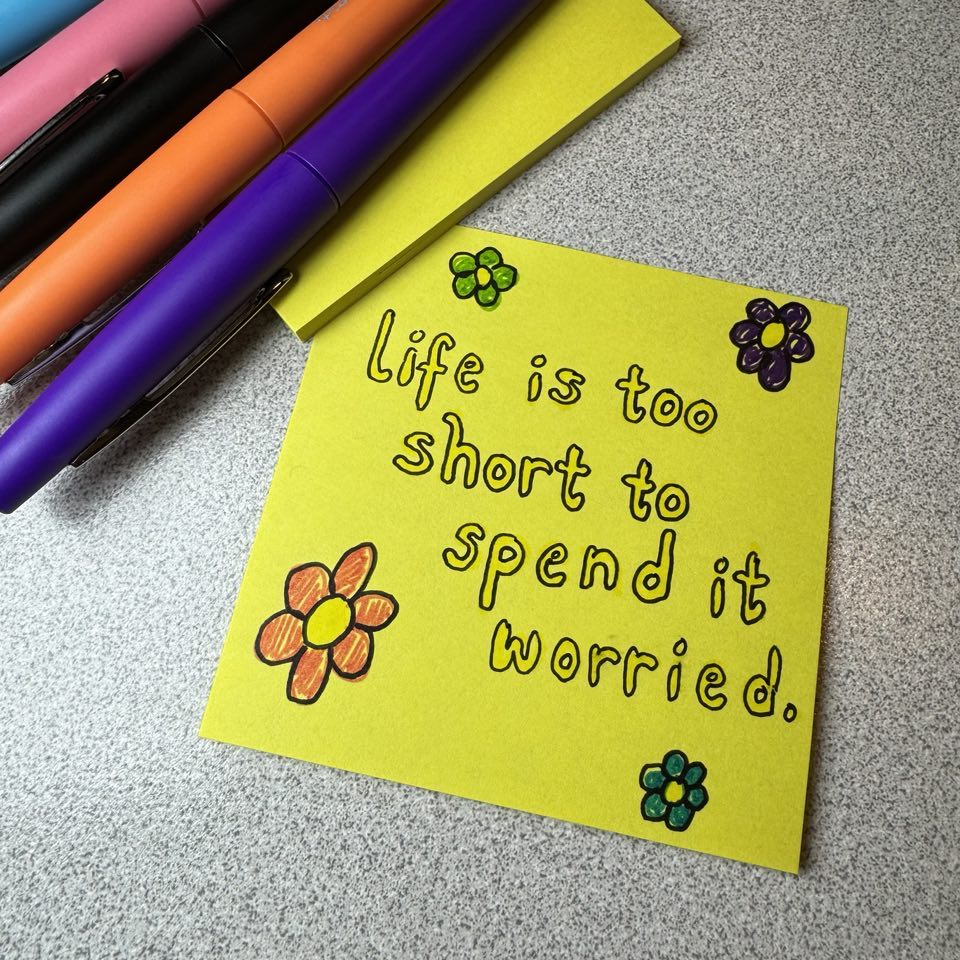 Life is too
short to
spend it
worried.